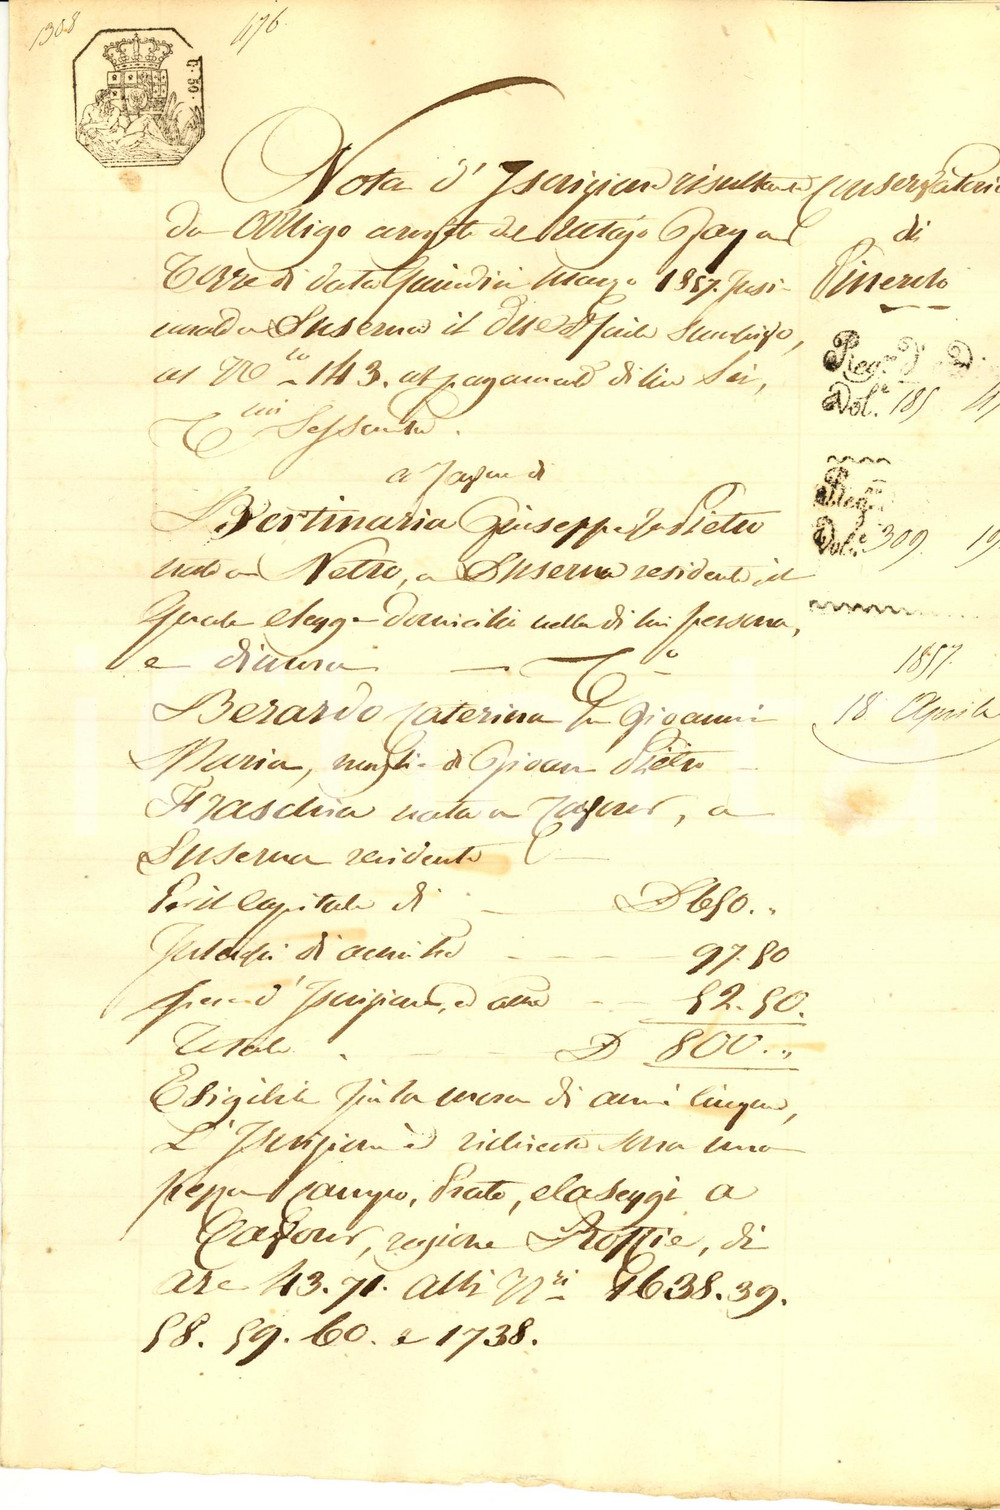 1308 176
C. 50.
Nota d'Iscrizione risultante
da Obbligo rogato
Torre di data quindici marzo 1857. Insi-
nuato a Luserna il due Aprile
al N.º 143. pagamento di lire Sei,
C.mi Sessanta.
a favore di
Bertinaria Giuseppe fu Pietro
nato a Netro, a Luserna residente il
quale elegge domicilio nella di lui persona,
e dimora
Berardo Caterina fu Gioanni
Maria, moglie di Gioan Pietro
Fraschia nata a Cavour, a
Luserna residente C
Per il Capitale di L 650. "
Interessi di annate 97. 50
Spese d'Iscrizione, ed altre 52. 50.
Totale L 800. "
Esigibile fra la mora di anni cinque,
L'Iscrizione è richiesta sovra una
pezza Campo, Prato, e
Cavour, regione di
are 43. 71. alli N.ri 1638. 39.
58. 59. 60. e 1738.
Conservatoria
di
Pinerolo
Reg.º d'
Vol.e 185
Reg.
Vol.e 309
1857.
18 Aprile